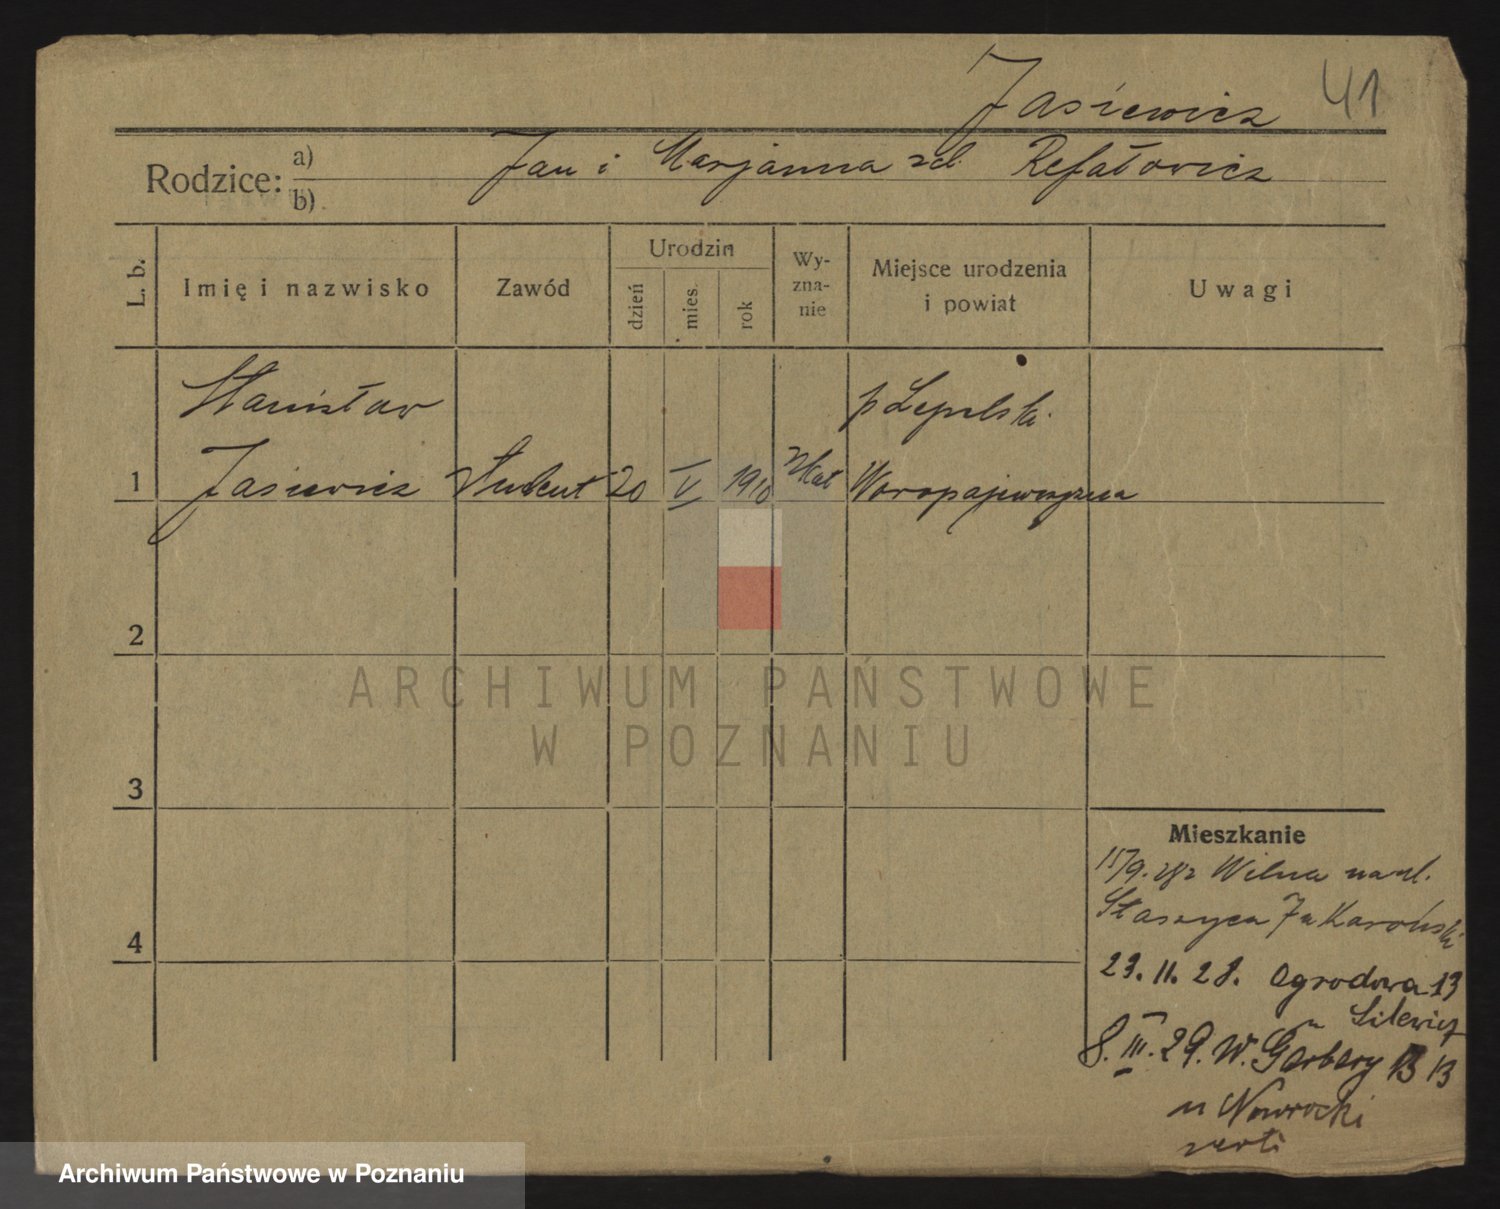 Jasiewicz 41
Rodzice: a) b) Jan i Marjanna zd. Refałowicz
L. b. Imię i nazwisko Zawód Urodzin dzień mies. rok Wy-zna-nie Miejsce urodzenia i powiat Uwagi
Stanisław p Lepelski
1 Jasiewicz Student 20 V 1910 rzkat Woropajewszczyzna
2
3
4
Mieszkanie
15/9.28 z Wilna na ul.
Staszyca 7 u Karoński
23.11.28. Ogrodowa 13
u Silewicz
8.III.29. W. Garbary 13
u Nawrocki
verti
ARCHIWUM PAŃSTWOWE
W POZNANIU
Archiwum Państwowe w Poznaniu